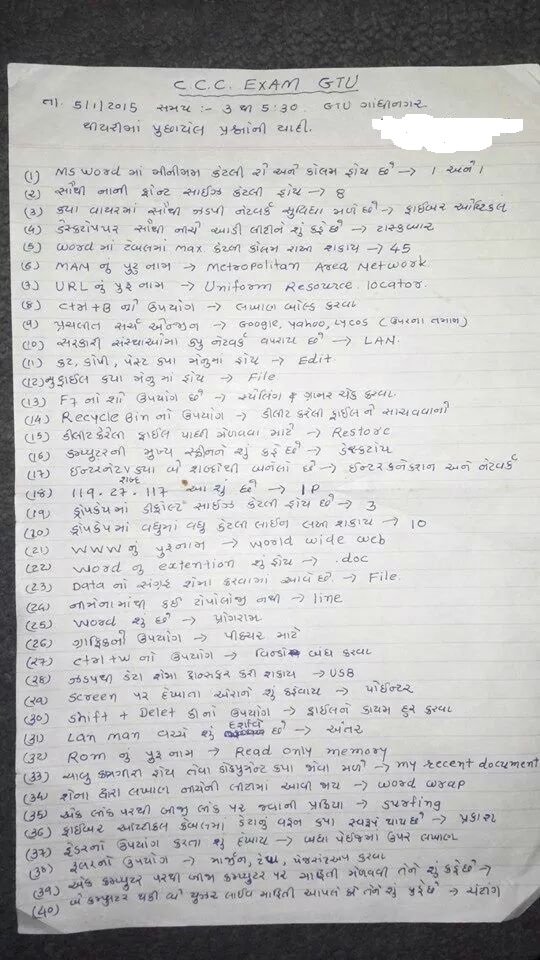 C.C.C. EXAM GTU
તા. 5/1/2015 સમય :- 3 થી 5:30. GTU ગાંધીનગર
થીયરીમાં પુછાયેલ પ્રશ્નોની યાદી.
(1) MS Word માં મીનીમમ કેટલી રો અને કોલમ હોય છે → 1 અને 1
(2) સૌથી નાની ફોન્ટ સાઈઝ કેટલી હોય → 8
(3) કયા વાયરમાં સૌથી ઝડપી નેટવર્ક સુવિધા મળે છે → ફાઈબર ઓપ્ટિકલ
(4) ડેસ્કટોપપર સૌથી નીચે આડી લીટીને શું કહે છે → ટાસ્કબાર
(5) Word માં ટેબલમાં max. કેટલી કોલમ રાખી શકાય → 45
(6) MAN નું પુરુ નામ → Metropolitan Area Network.
(7) URL નું પુરૂ નામ → Uniform Resource locator.
(8) Ctrl+B નો ઉપયોગ → લખાણ બોલ્ડ કરવા
(9) પ્રચલીત સર્ચ એન્જીન → Google, yahoo, Lycos (ઉપરના તમામ)
(10) સરકારી સંસ્થાઓમાં કયુ નેટવર્ક વપરાય છે → LAN.
(11) કટ, કોપી, પેસ્ટ કયા મેનુમાં હોય → Edit
(12) ન્યુ ફાઈલ કયા મેનુ માં હોય → File
(13) F7 નો શો ઉપયોગ છે → સ્પેલિંગ & ગ્રામર ચેક કરવા.
(14) Recycle Bin નો ઉપયોગ → ડીલીટ કરેલી ફાઈલ ને સાચવવાનો
(15) ડીલીટ કરેલી ફાઈલ પાછી મેળવવા માટે → Restore
(16) કમ્પ્યુટરની મુખ્ય સ્ક્રીનને શું કહે છે → ડેસ્કટોપ
(17) ઈન્ટરનેટ શબ્દ કયા બે શબ્દોથી બનેલો છે → ઈન્ટરકનેકશન અને નેટવર્ક
(18) 119.27.117 આ શું છે → IP
(19) ડ્રોપકેપમાં ડીફોલ્ટ સાઈઝ કેટલી હોય છે → 3
(20) ડ્રોપકેપમાં વધુમાં વધુ કેટલી લાઈન લખી શકાય → 10
(21) WWW નું પુરૂનામ → world wide web
(22) Word નુ extention શું હોય → .doc
(23) Data નો સંગ્રહ શેમાં કરવામાં આવે છે. → File.
(24) નીચેનામાંથી કઈ ટોપોલોજી નથી → line
(25) Word શું છે → પ્રોગ્રામ
(26) ગ્રાફિકનો ઉપયોગ → પીક્ચર માટે
(27) Ctrl+W નો ઉપયોગ → વિન્ડો બંધ કરવા
(28) ઝડપથી ડેટા શેમા ટ્રાન્સફર કરી શકાય → USB
(29) Screen પર દેખાતા એરોને શું કહેવાય → પોઈન્ટર
(30) Shift + Delet કી નો ઉપયોગ → ફાઈલને કાયમ દુર કરવા
(31) Lan man વચ્ચે શું દર્શાવે છે → અંતર
(32) Rom નું પુરૂ નામ → Read only memory
(33) ચાલુ કામગીરી હોય તેવા ડોક્યુમેન્ટ કયા જોવા મળે → my recent document
(34) શેના દ્વારા લખાણ નીચેની લીટીમાં આવી જાય → word wrap
(35) એક લીંક પરથી બીજી લીંક પર જવાની પ્રક્રિયા → સર્ફીંગ
(36) ફાઈબર ઓપ્ટીકલ કેબલમાં ડેટાનું વહન કયા સ્વરૂપે થાય છે → પ્રકાશ
(37) હેડરનો ઉપયોગ કરતા શું દેખાય → બધા પેઈજમાં ઉપર લખાણ
(38) રૂલરનો ઉપયોગ → માર્જીન, ટેબ, પેજસેટઅપ કરવા
(39) એક કમ્પ્યુટર પરથી બીજા કમ્પ્યુટર પર માહિતી મેળવવી તેને શું કહે છે →
(40) બે કમ્પ્યુટર થકી બે યુઝર લાઈવ માહિતી આપલે કરે તેને શું કહે છે → ચેટીંગ